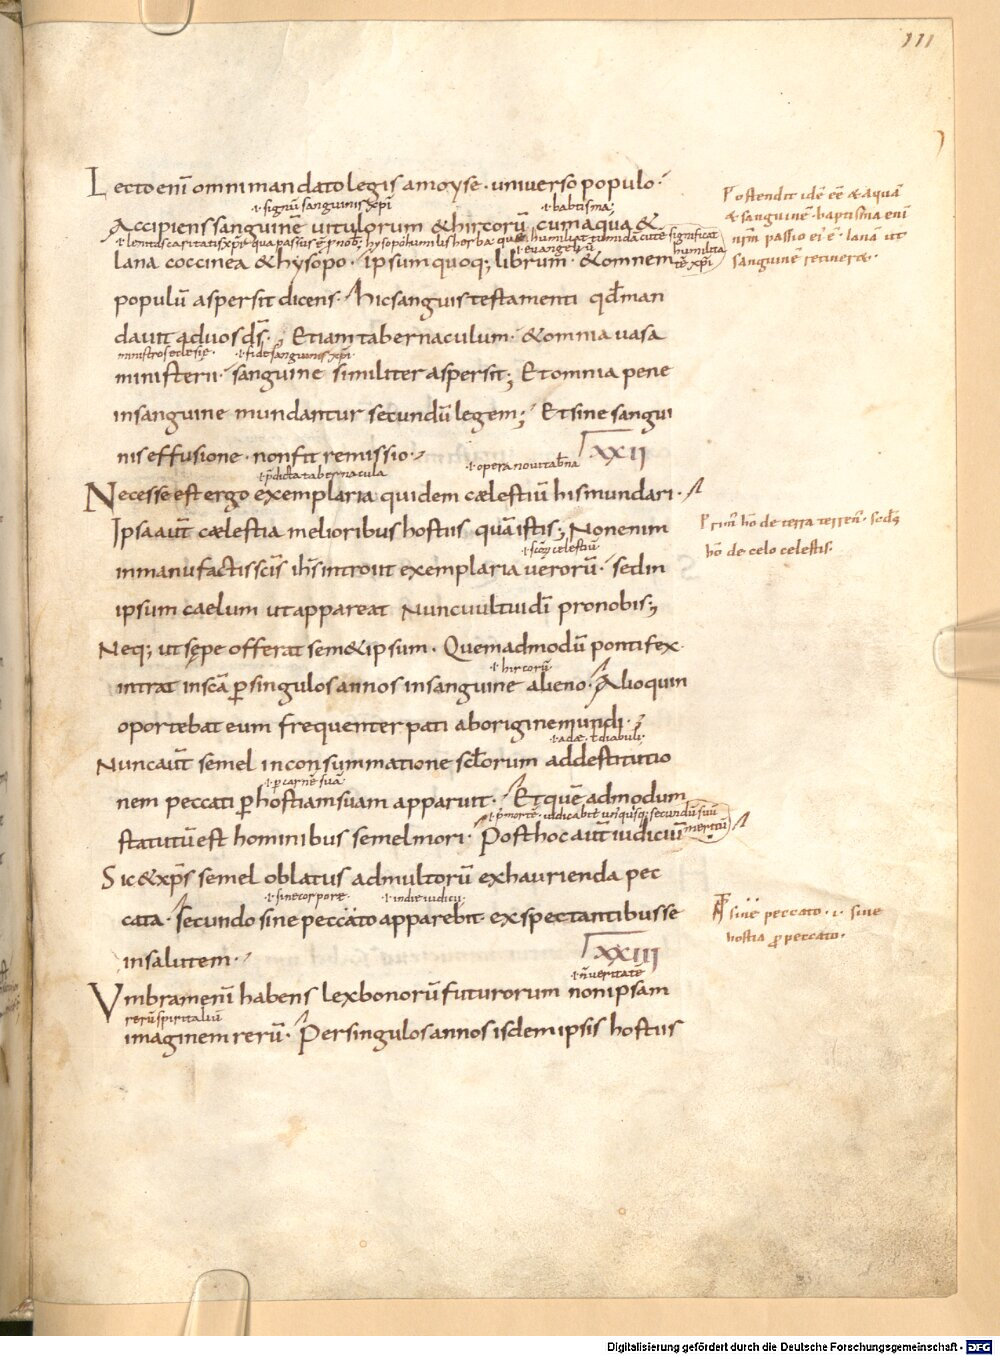 111
Lecto enī omni mandato legis a moyse · universo populo ·
·i· signū sanguinis xp̄i
·i· babtisma
Accipiens sanguinē vitulorum & hircorū cum aqua &
·i· lenitas caritatis xp̄i qua passus ē p nob; hysopo humilis herba quae humiliat tumidā cutē significat humilitatē xp̄i
·i· evangeliū
lana coccinea & hysopo · ipsum quoq; librum · & omnem
populū aspersit dicens · hic sanguis testamenti qđ man
davit ad vos ds̄ ·; Etiam tabernaculum · & omnia vasa
ministros eclesię · ·i· fide sanguinis xp̄i
ministerii · sanguine similiter aspersit; Et omnia pene
in sanguine mundantur secundū legem; Et sine sangui
nis effusione · non fit remissio ·
XXII
·i· p̄dicta tabernacula
·i· opera novi
Necesse est ergo exemplaria quidem cælestiū his mundari ·
Ipsa aut̄ cælestia melioribus hostiis quā istis; Non enim
·i· celestiū
in manufactis sc̄is ih̄s introiit exemplaria verorū · sed in
ipsum caelum ut appareat nunc vultui dī pro nobis;
Neq; ut sępe offerat sem&ipsum · Quemadmodū pontifex
intrat in sc̄a p singulos annos in sanguine alieno · Alioquin
·i· hircorū
oportebat eum frequenter pati ab origine mundi ·;
·i· adae · ł diabuli ·
Nunc aut̄ semel in consummatione scłorum ad destitutio
·i· p carnē suā
nem peccati p hostiam suam apparuit · Et quē admodum
·i· p̄ mortē · iudicabit unusq́sq; secundū suū meritū
statutū est hominibus semel mori · Post hoc aut̄ iudiciū
Sic & xp̄s semel oblatus ad multorū exhaurienda pec
·i· sine corpore · ·i· in die iudicii ·
cata · secundo sine peccato apparebit exspectantibus se
in salutem ·
XXIII
·i· n̄ veritatē
Umbram enī habens lex bonorū futurorum non ipsam
rerū spiritaliū
imaginem rerū · Per singulos annos isdem ipsis hostiis
P ostendit idē eē & aquā
& sanguinē · baptisma enī
nr̄m passio ei' ē · lanā ut
sanguinē retinere ·
Prim' hō de terra terren' · scd̄s
hō de celo celestis ·
sine peccato · i · sine
hostia p peccato ·
Digitalisierung gefördert durch die Deutsche Forschungsgemeinschaft - DFG